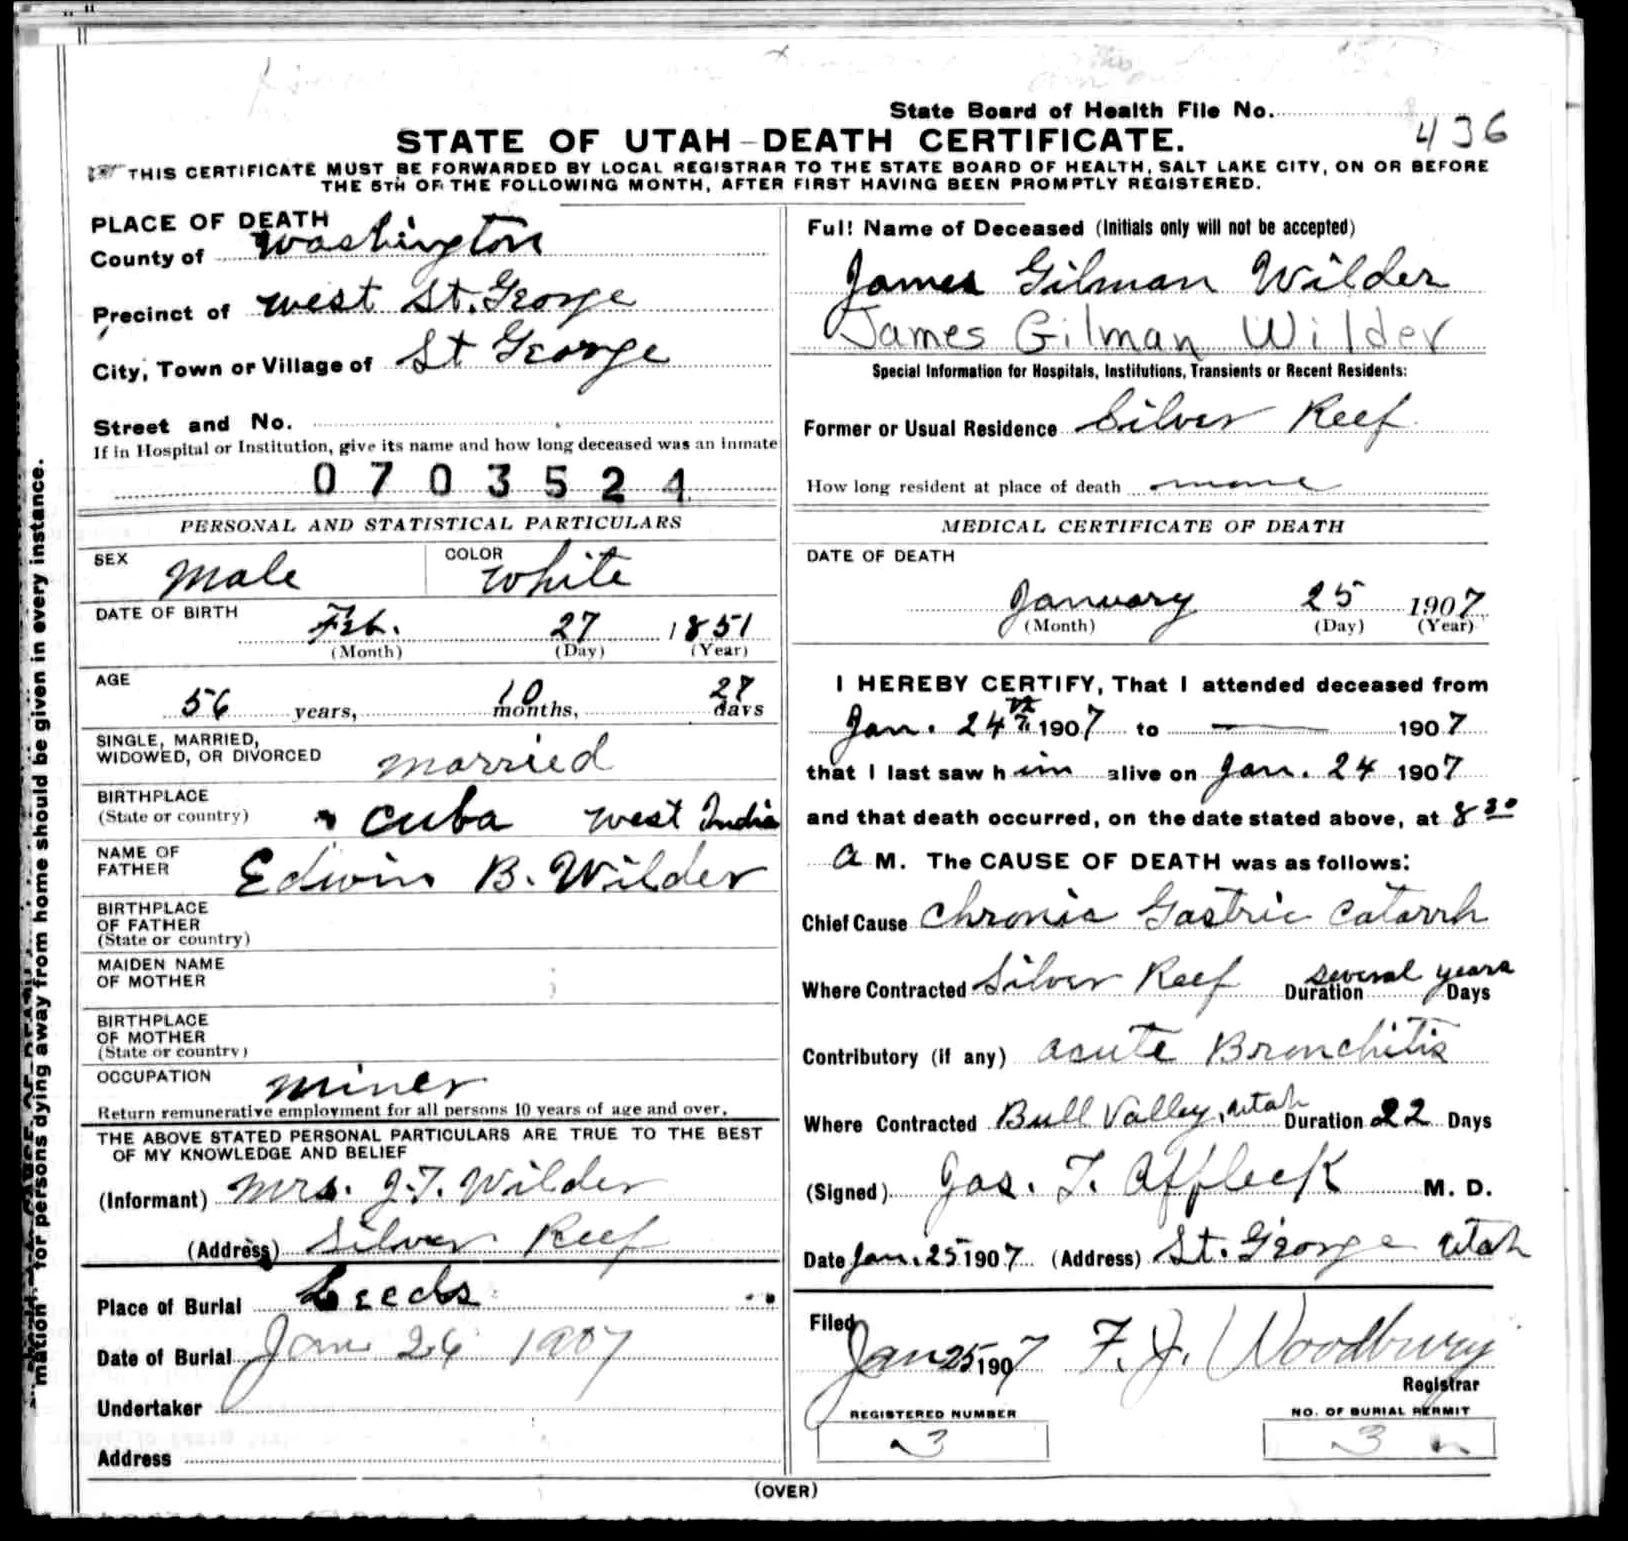 State Board of Health File No. 436
STATE OF UTAH—DEATH CERTIFICATE.
THIS CERTIFICATE MUST BE FORWARDED BY LOCAL REGISTRAR TO THE STATE BOARD OF HEALTH, SALT LAKE CITY, ON OR BEFORE
THE 5TH OF THE FOLLOWING MONTH, AFTER FIRST HAVING BEEN PROMPTLY REGISTERED.
mation for persons dying away from home should be given in every instance.
PLACE OF DEATH
County of Washington
Precinct of West St. George
City, Town or Village of St George
Street and No.
If in Hospital or Institution, give its name and how long deceased was an inmate
0703524
PERSONAL AND STATISTICAL PARTICULARS
SEX Male COLOR White
DATE OF BIRTH
Feb. 27 1851
(Month) (Day) (Year)
AGE
56 years, 10 months, 28 days
SINGLE, MARRIED,
WIDOWED, OR DIVORCED married
BIRTHPLACE
(State or country) Cuba West India
NAME OF
FATHER Edwin B. Wilder
BIRTHPLACE
OF FATHER
(State or country)
MAIDEN NAME
OF MOTHER
BIRTHPLACE
OF MOTHER
(State or country)
OCCUPATION miner
Return remunerative employment for all persons 10 years of age and over.
THE ABOVE STATED PERSONAL PARTICULARS ARE TRUE TO THE BEST
OF MY KNOWLEDGE AND BELIEF
(Informant) Mrs. J.T. Wilder
(Address) Silver Reef
Place of Burial Leeds
Date of Burial Jan 26 1907
Undertaker
Address
Full Name of Deceased (Initials only will not be accepted)
James Gilman Wilder
James Gilman Wilder
Special Information for Hospitals, Institutions, Transients or Recent Residents:
Former or Usual Residence Silver Reef
How long resident at place of death
MEDICAL CERTIFICATE OF DEATH
DATE OF DEATH
January 25 1907
(Month) (Day) (Year)
I HEREBY CERTIFY, That I attended deceased from
Jan. 24th 1907 to — 1907
that I last saw him alive on Jan. 24 1907
and that death occurred, on the date stated above, at 8 30
a M. The CAUSE OF DEATH was as follows:
Chief Cause Chronic Gastric Catarrh
Where Contracted Silver Reef Duration several years Days
Contributory (if any) acute Bronchitis
Where Contracted Bull Valley, Utah Duration 22 Days
(Signed) Jas. T. Affleck M. D.
Date Jan. 25 1907 (Address) St. George Utah
Filed
Jan 25 1907 F. J. Woodbury
Registrar
REGISTERED NUMBER
3
NO. OF BURIAL PERMIT
3
(OVER)